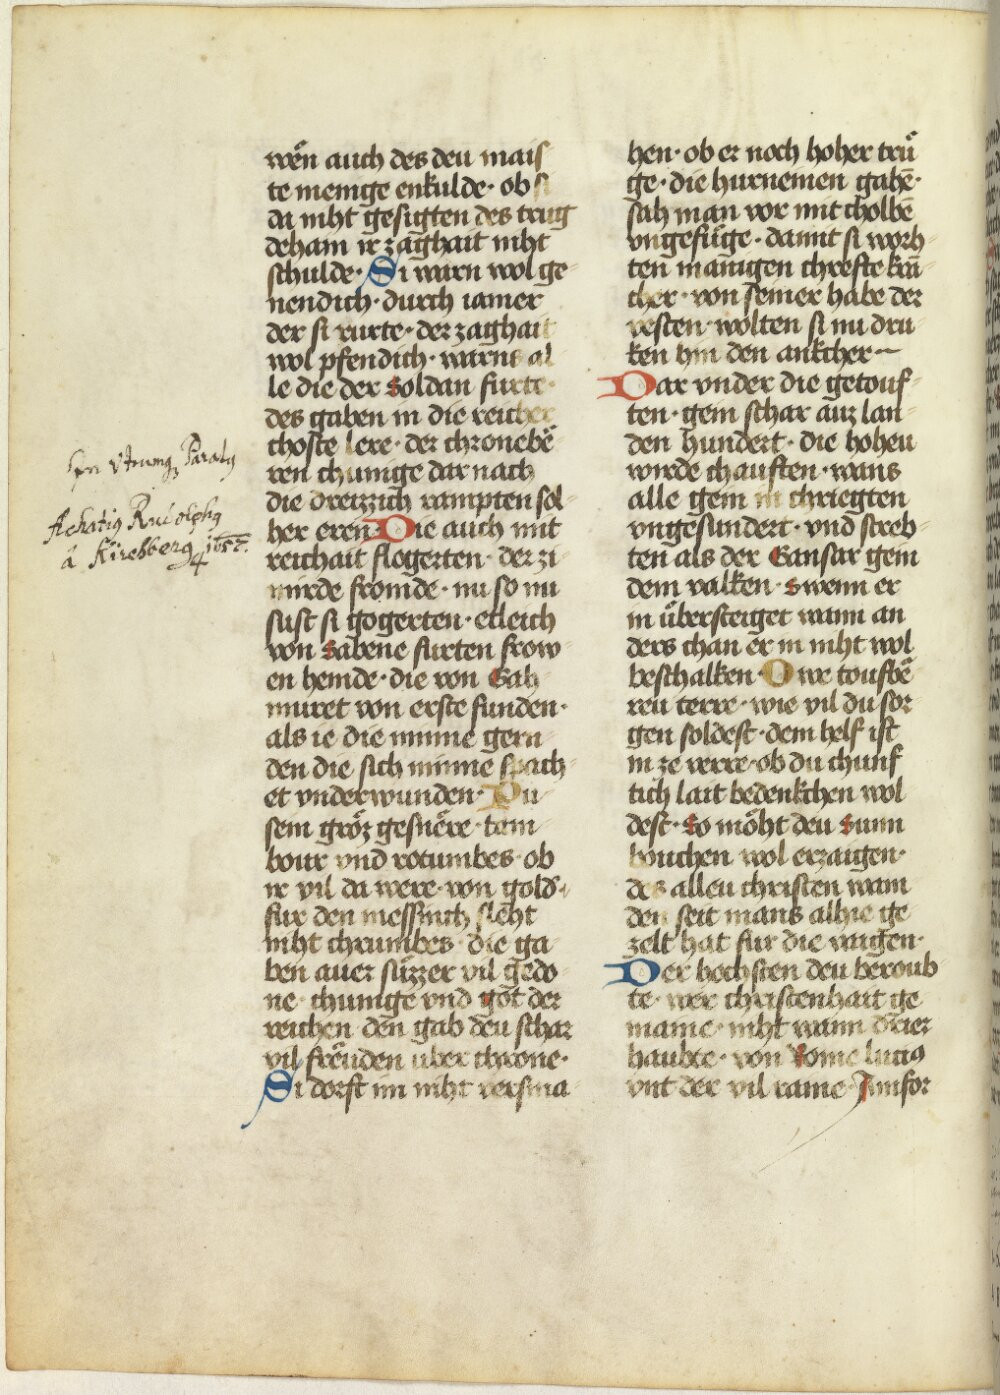 wen̄ auch des deu mais
te menige enkulde· ob si
da niht gesigten des trug
deham ir zaghait niht
schulde· Si warn wol ge
nendich· durch iamer
der si rurte· der zaghait
wol pfendich· warns al
le die der soldan furte·
des gaben in die reicher
choste lere· der chronebē
ren chunige dar nach
die dreizzich rampten sol
her eren Die auch mit
reichait flogerten· der zi
mirde fromde· nu so nu
sust si gogerten· etleich
von Sabene furten frow
en hemde· die von Gah
muret von erste funden·
als ie die minne gern
den die sich minne spæch
et vnderwunden· Du
sein gröz gesnēre· tam
bour vnd rotumbes· ob
ir vil da were· von gold·
fur den messinch sleht
niht chrumbes· die ga
ben auer süzzer vil gedo
ne· chunige vnd got der
reichen den gab deu schar
vil freuden uber chrone·
Si dorft im niht versma
hen· ob er noch hoher trů
ge· die hurneinen gabē·
sah man vor mit cholbē
vngefüge· damit si worh
ten manigen chrefte krā
cher· von seiner habe der
vesten· wolten si nu dru
ken hin den ankcher
Dar vnder die getouf
ten· gein schar auz lan
den hundert· die hoheu
wirde chauften· wans
alle gein in chriegten
vngesundert· vnd streb
ten als der Gansar gein
dem valken· swenn er
in übersteiget wann an
ders chan er in niht wol
beschalken· Owe toufbē
reu terre· wie vil du sor
gen soldest· dem helf ist
in ze verre· ob du chunf
tich lait bedenkchen wol
dest· So möht deu sunn
bouchen wol erzaigen·
des alleu christen wam
den seit mans alhie ge
zelt hat fur die vaigen·
Der hochsten deu beroub
te· wer christenhait ge
maine· niht wann drier
haubte· von Rome lucius
vnt der vil raine· Jnnsor
Achatiq Rudolphq
â Kirchberg